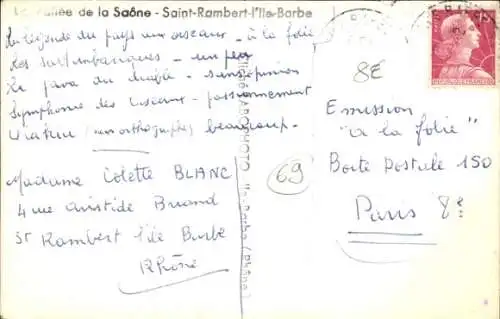 La Vallée de la Saône - Saint-Rambert-l'Ile-Barbe
La légende du pays aux oiseaux - à la folie
Les saltimbanques - un peu
La java du diable - sans opinion
Symphonie des oiseaux - passionnément
(mon orthographe) beaucoup -
Madame Colette BLANC
4 rue Aristide Briand
St Rambert l'ile Barbe
Rhône
69
8E
Emission
"à la folie"
Boite Postale 150
Paris 8e
15F
REPUBLIQUE FRANÇAISE